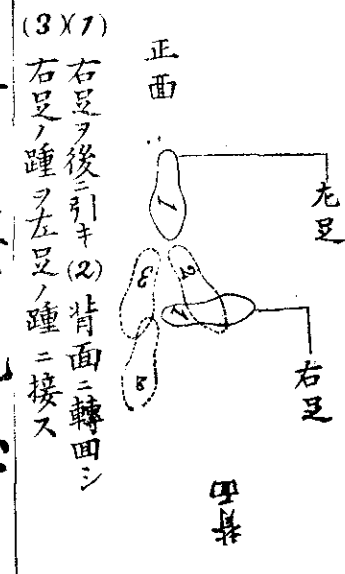 正面
左足
右足
背面
1
2
3
1
3
(1)右足ヲ後ニ引キ(2)背面ニ轉回シ
(3)右足ノ踵ヲ左足ノ踵ニ接ス